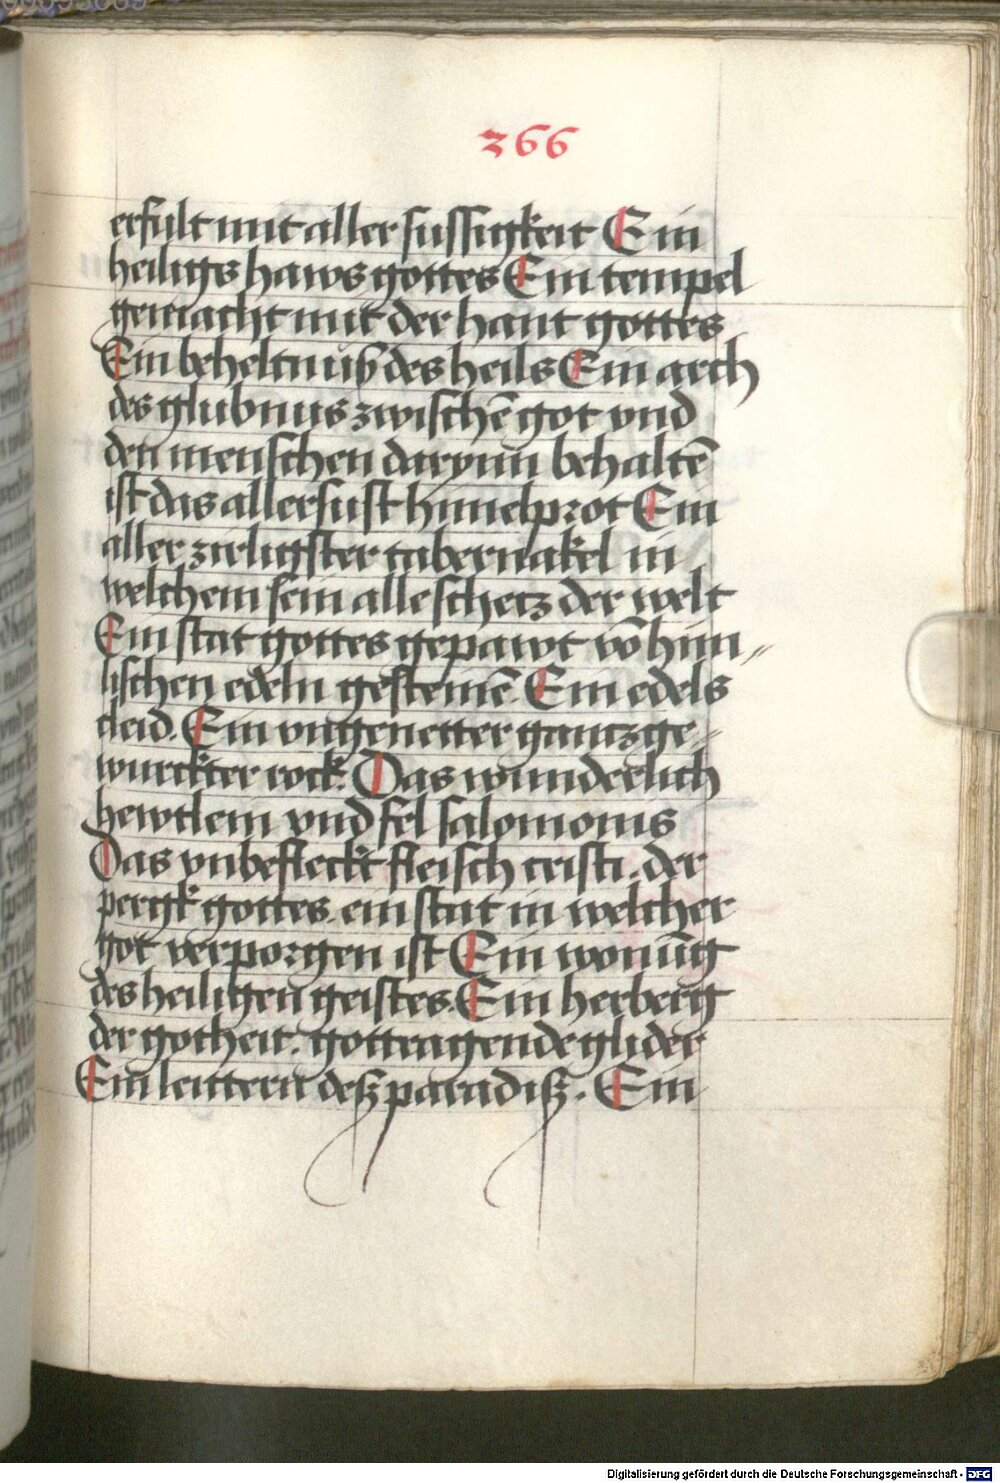 366
erfult mit aller sussigkeit Ein
heiligs haws gottes Ein tempel
gemacht mit der hant gottes
Ein beheltnuß des heils Ein arch
des glubnus zwischē got vnd
den menschen darynn behaltē
ist das allersust himelprot Ein
aller zirligster tabernakel in
welchem sein alle schetz der welt
Ein stat gottes gepawt vō him„
lischen edeln gesteinē Ein edels
cleid. Ein vngenetter gantz ge„
wurckter rock. Das wunderlich
hewtlein vnd fel salomonis
Das vnbefleckt fleisch cristi. der
pergk gottes. ein stat in welcher
got verporgen ist Ein wonūg
des heiligen geistes. Ein herberg
der gotheit. gottragende glider
Ein leittern desz paradisz. Ein
Digitalisierung gefördert durch die Deutsche Forschungsgemeinschaft - DFG